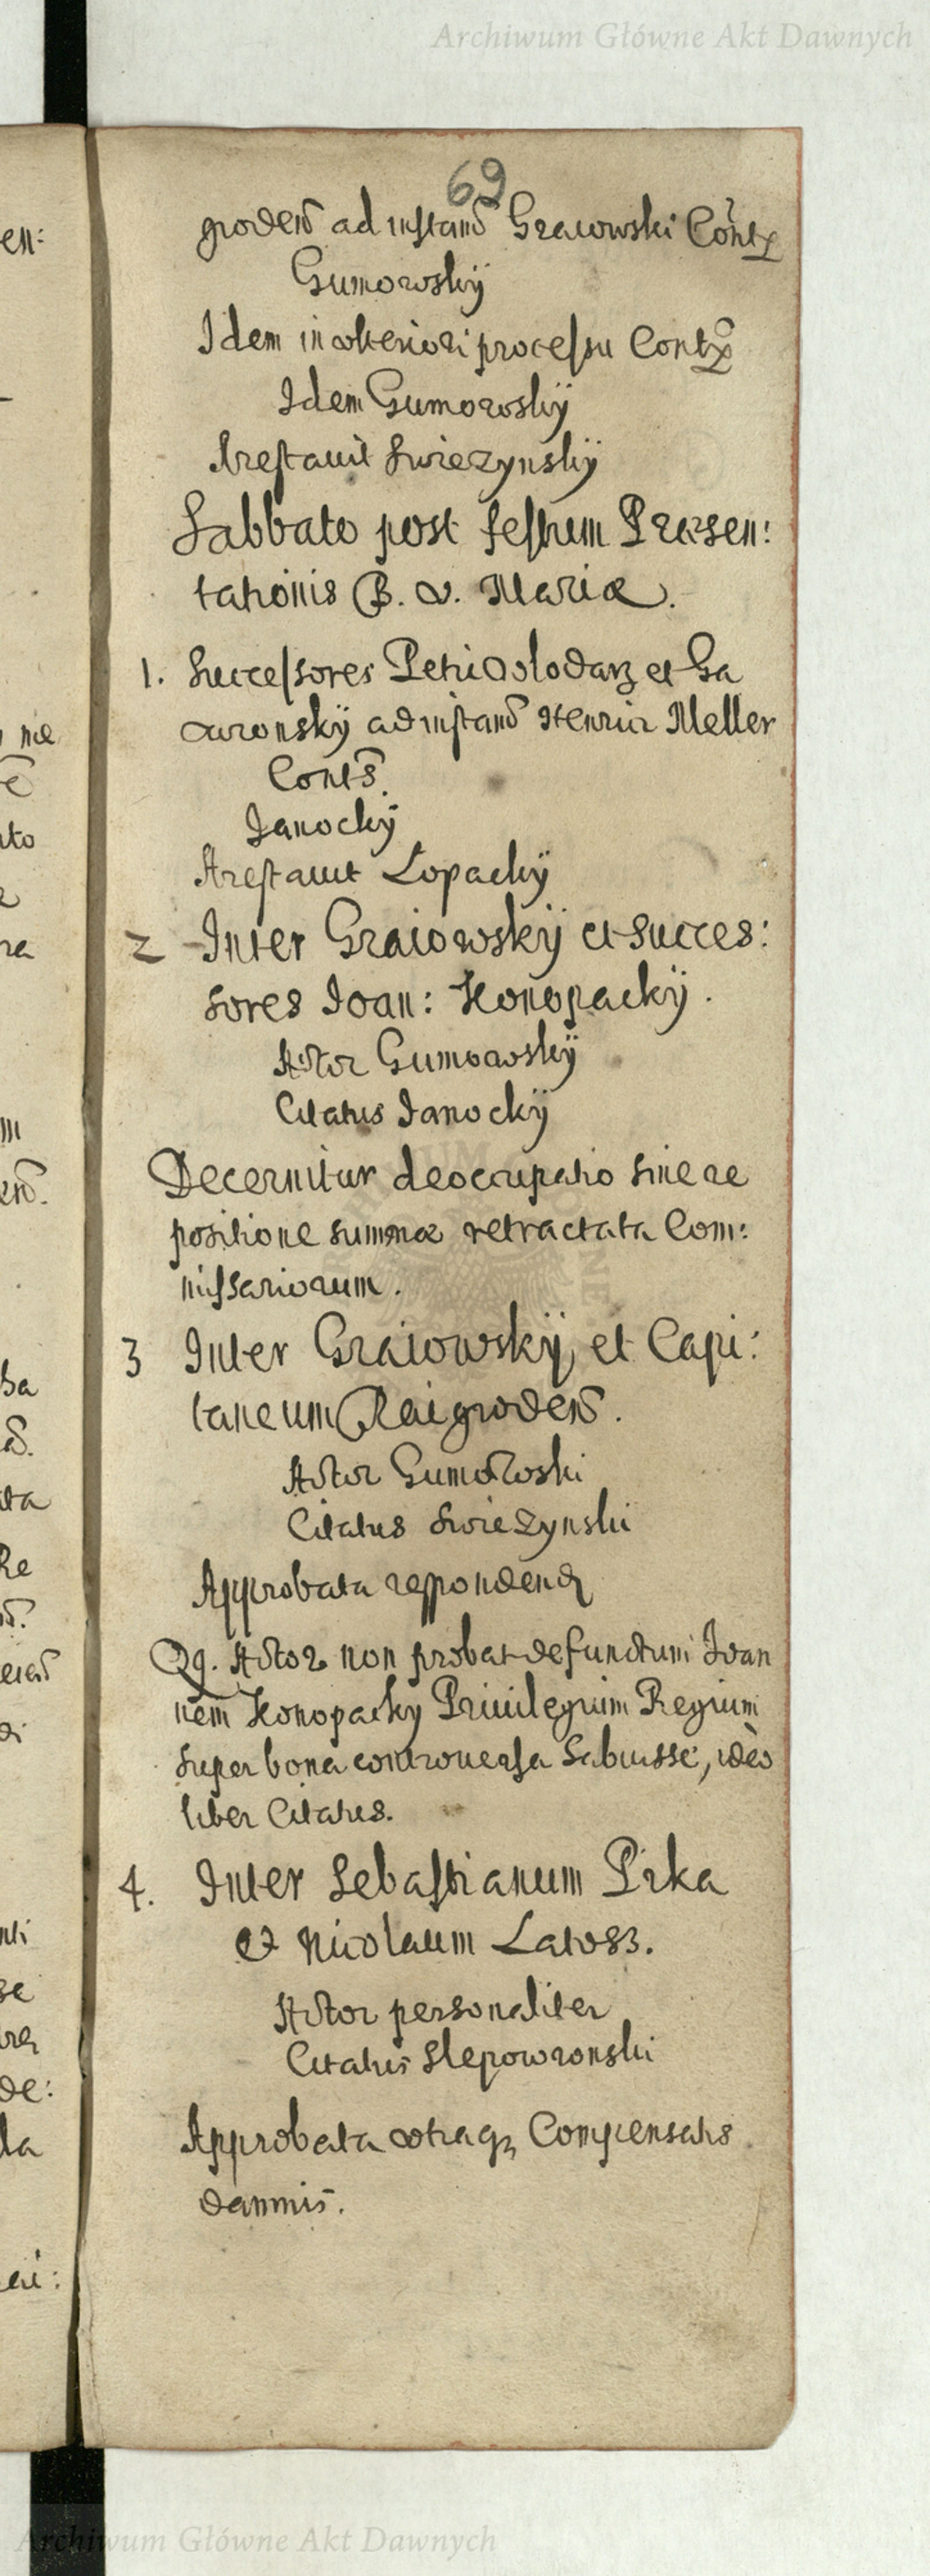 Archiwum Główne Akt Dawnych
69
grodens ad instans Graiowski Contx
Gumowskÿ
Idem in vlteriori processu Contx
Idem Gumowskÿ
Arestauit Swiezynskÿ
Sabbato post festum Præsen:
tationis B. V. Mariæ.
1. Successores Petri Wlodarz et Ga
wronskÿ ad instans Henrici Meller
Conts.
Janockÿ
Arestauit Lopackÿ
2 Inter Graiowskÿ et Succes:
sores Ioan: Konopackÿ.
Actor Gumowskÿ
Citatus Janockÿ
Decernitur deoccupatio sine re
positione summæ retractata Com:
missariorum.
3 Inter Graiowskÿ, et Capi:
taneum Raigrodens.
Actor Gumowski
Citatus Swiezynski
Approbata respondend
Qq. Actor non probat defunctum Ioan
nem Konopacky Priuilegium Regium
super bona controuersa habuisse, ideò
liber Citatus.
4. Inter Sebastianum Pirka
et Nicolaum Latosz.
Actor personaliter
Citatus Slepowronski
Approbata vtraq3 Compensatis
damnis.
Archiwum Główne Akt Dawnych